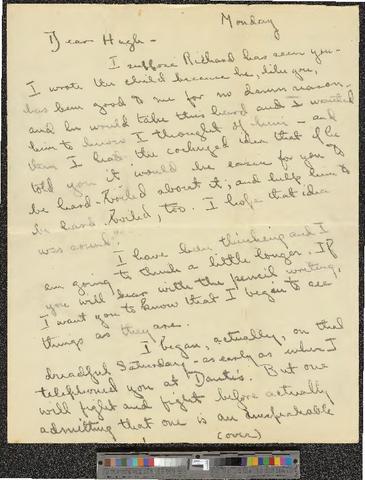 Monday
Dear Hugh -
I suppose Richard has seen you -
I wrote the child because he, like you,
has been good to me for no damn reason -
and he would take this hard and I wanted
him to know I thought of him - and
then I had the cockeyed idea that if he
told you it would be easier for you to
be hard-boiled about it; and help him to
be hard-boiled, too. I hope that idea
was sound.
I have been thinking and I
am going to think a little longer. If
you will bear with the pencil writing,
I want you to know that I began to see
things as they are.
I began, actually, on that
dreadful Saturday - as early as when I
telephoned you at Dante's. But one
will fight and fight before actually
admitting that one is an unspeakable
(over)